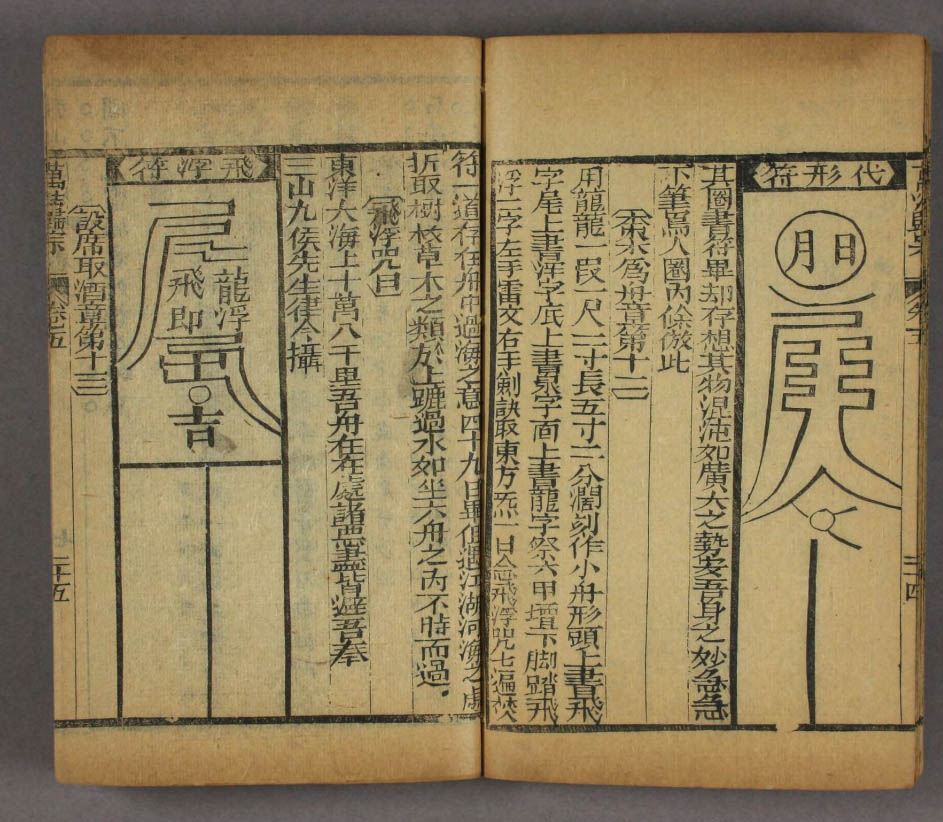 代形符
日月
其圖書符畢却存想其物混沌如廣大之勢安吾身之妙急急
下筆寫人圈內餘倣此
乘木為舟章第十二
用龍龍一段一尺二寸長五寸二分濶刻作小舟形頭上書飛
字尾上書洋字底上書 字面上書龍字祭六甲壇下脚踏飛
浮二字左手雷文右手劍訣取東方炁一口念飛浮咒七遍焚
符一道存在舟中過海之意四十九日畢但遇江湖河海之處
折取樹枝草木之類於上蹠過水如坐大舟之內不時而過
飛浮咒曰
東洋大海上十萬八千里吾舟在在處諸惡盡皆避吾奉
三山九侯先生律令攝
飛浮符
龍浮
飛即
吉
設席取酒章第十三
萬法歸宗 卷之五 二十五